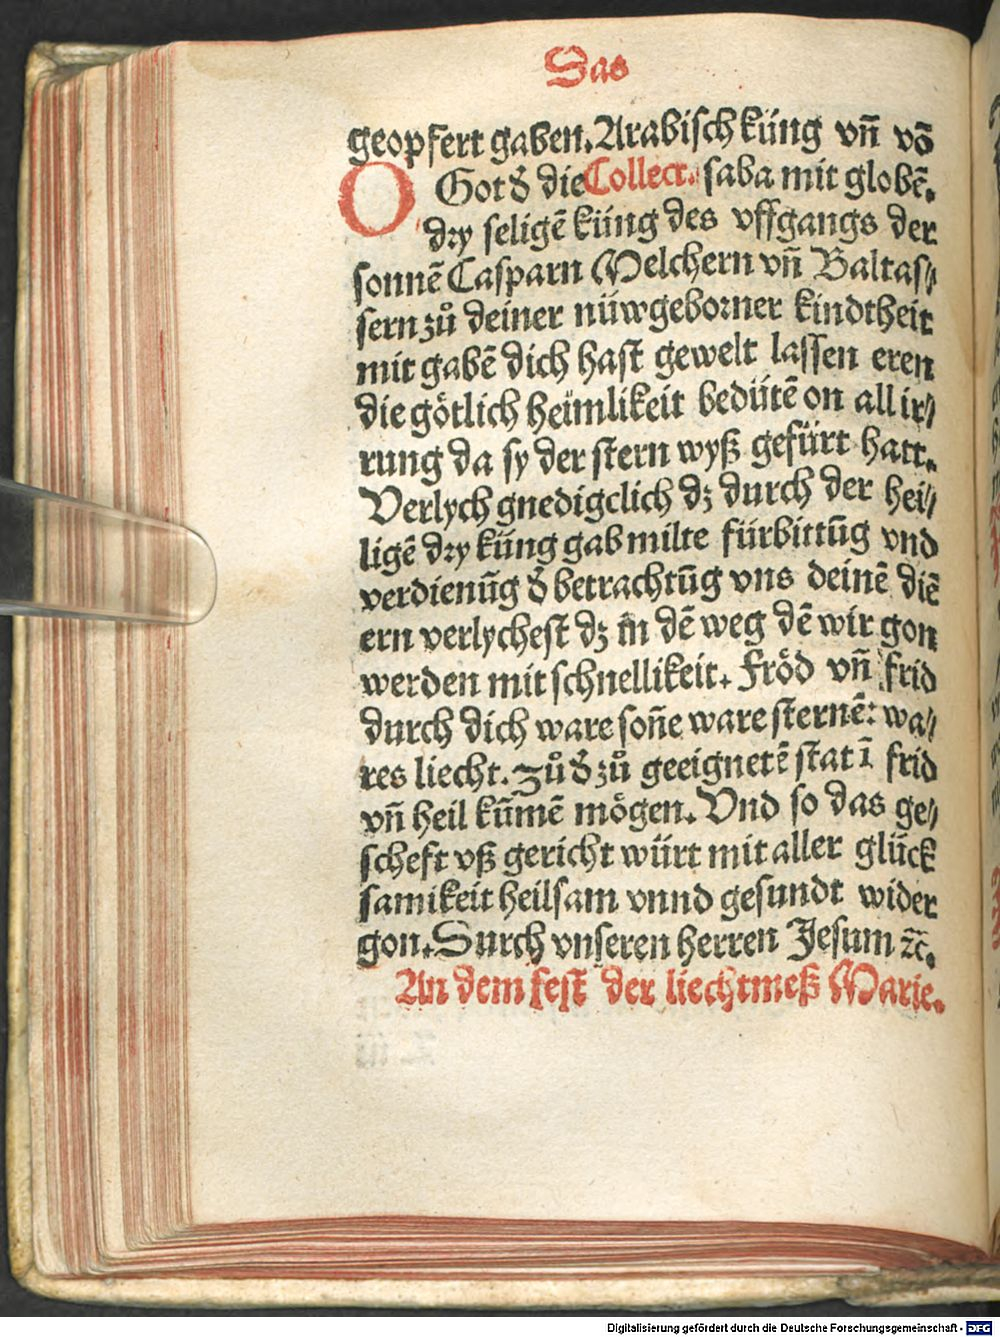 Das
geopfert gaben. Arabisch küng vn̄ vō
O Got d̕ die Collect. saba mit globē.
dry seligē küng des vffgangs der
sonnē Casparn Melchern vn̄ Baltas⸗
sern zů deiner nüwgeborner kindtheit
mit gabē dich hast gewelt lassen eren
die götlich heimlikeit bedütē on all ir⸗
rung da sy der stern wyß gefürt hatt.
Verlych gnedigclich dz durch der hei⸗
ligē dry küng gab milte fürbittūg vnd
verdienūg d̕ betrachtūg vns deinē diē
ern verlychest dz in dē weg dē wir gon
werden mit schnellikeit. Fröd vn̄ frid
durch dich ware son̄e ware sternē: wa⸗
res liecht. Zů d̕ zů geeignetē stat ī frid
vn̄ heil kūmē mögen. Vnd so das ge⸗
scheft vß gericht würt mit aller glück
samikeit heilsam vnnd gesundt wider
gon. Durch vnseren herren Jesum ⁊c̄.
An dem fest der liechtmeß Marie.
Digitalisierung gefördert durch die Deutsche Forschungsgemeinschaft - DFG